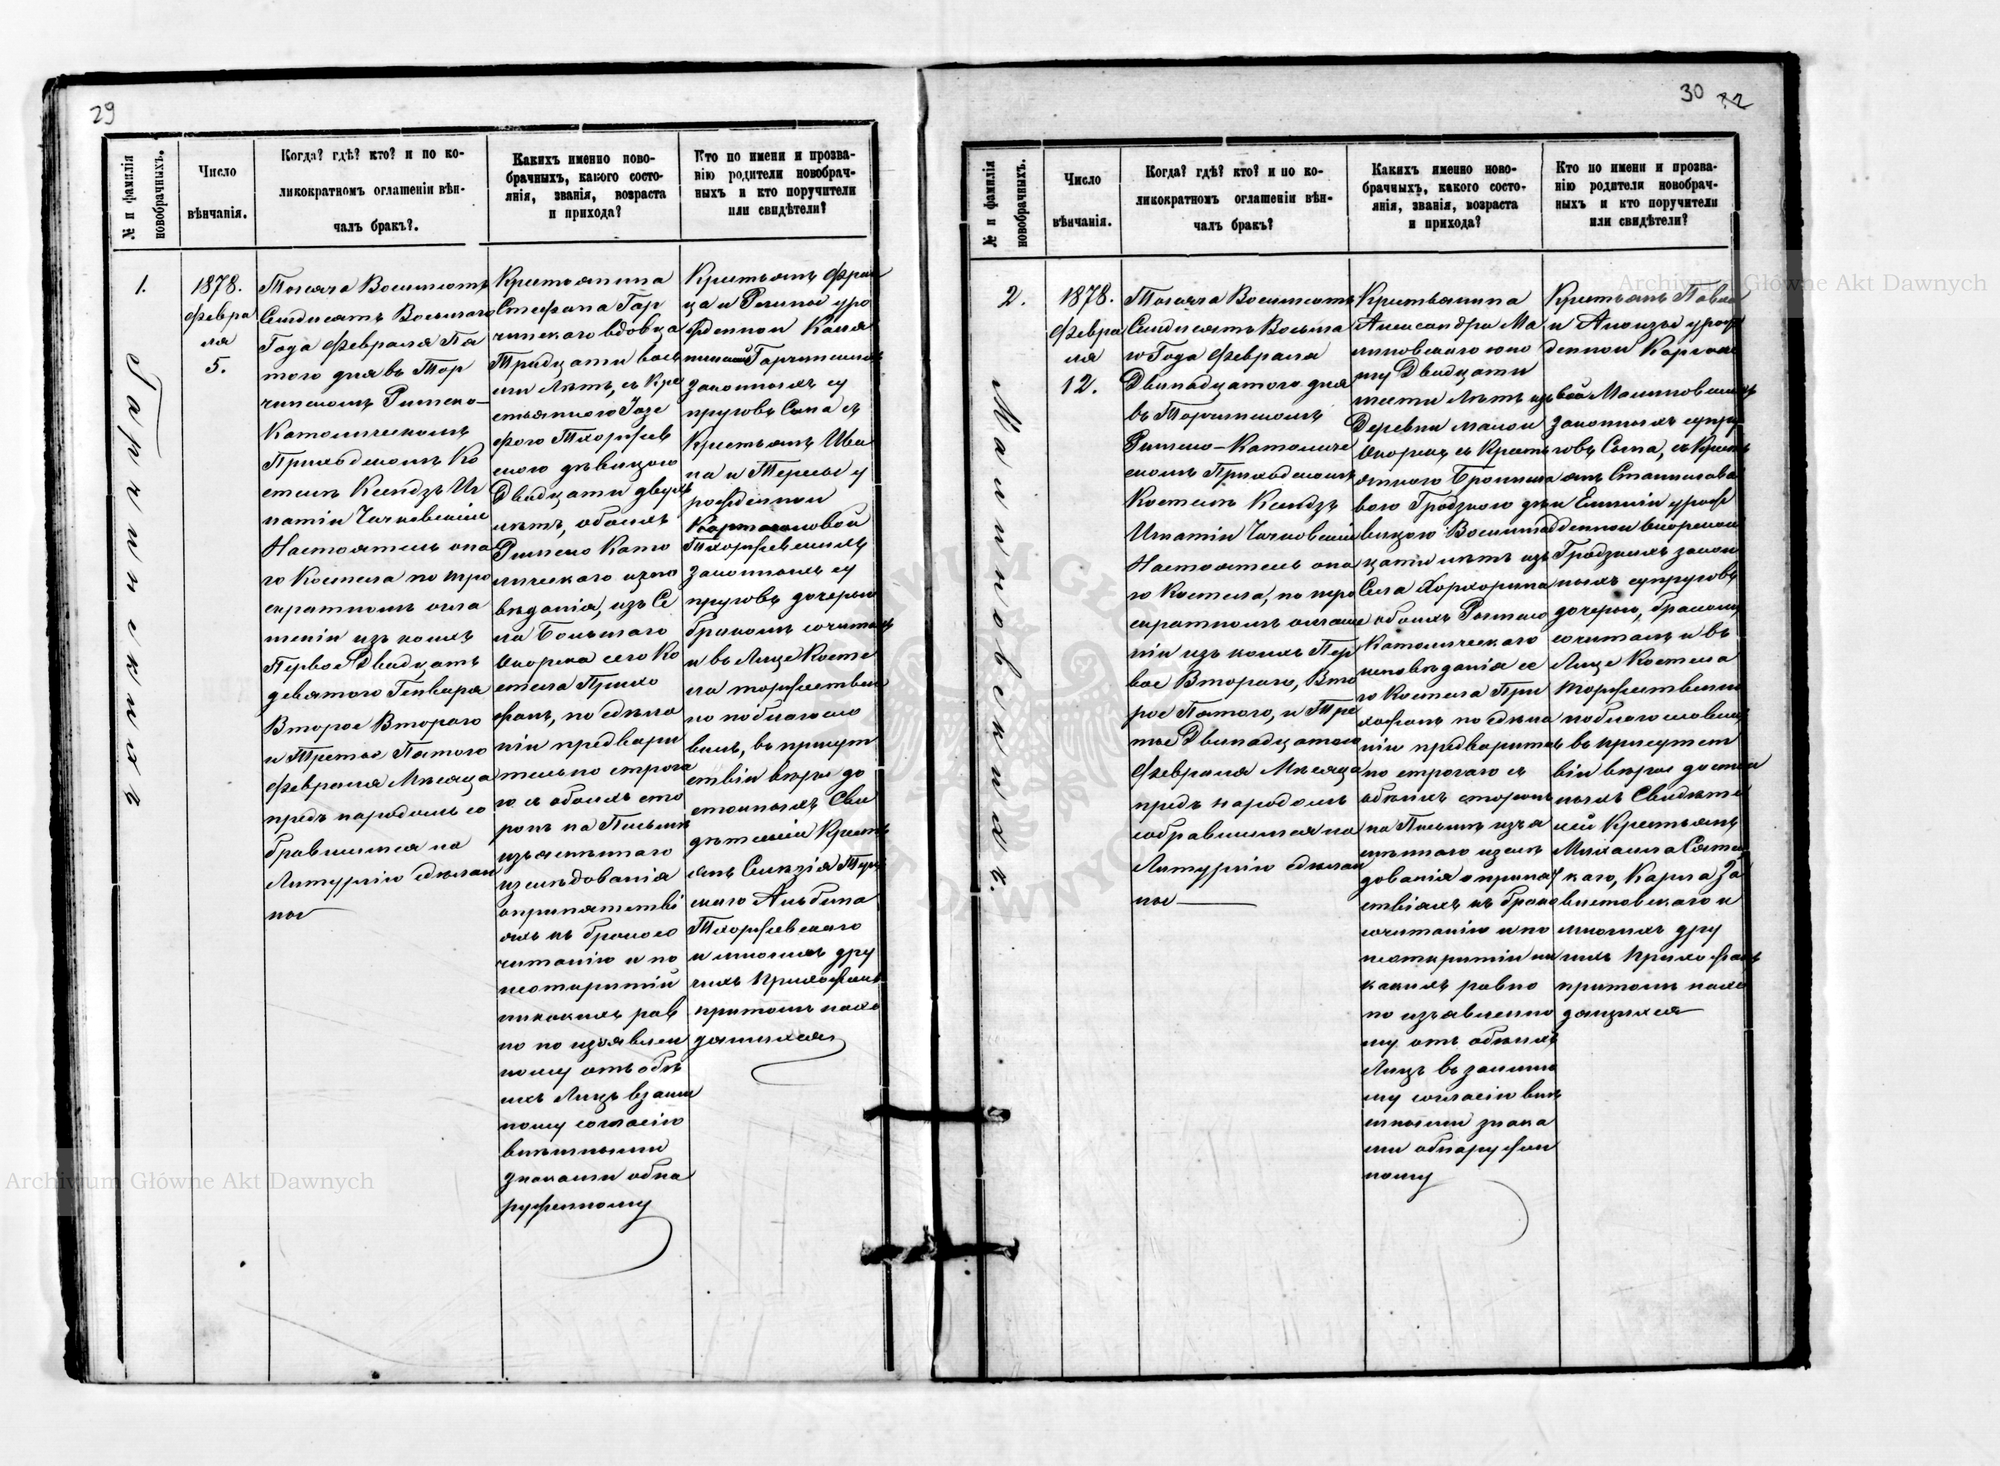 29
№ и фамилія новобрачныхъ.
Число вѣнчанія.
Когда? гдѣ? кто? и по ко-
ликократномъ оглашеніи вѣн-
чалъ бракъ?.
Какихъ именно ново-
брачныхъ, какого состо-
янія, званія, возраста
и прихода?
Кто по имени и прозва-
нію родители новобрач-
ныхъ и кто поручители
или свидѣтели?
1.
Гарчинскихъ
1878.
Февра
ля
5.
Тысяча Восемьсотъ
Семдисятъ Восьмаго
Года Февраля Пя
того дня въ Тор
чинскомъ Римско-
Католическомъ
Приходскомъ Ко
стелѣ Ксендзъ Иг
натій
Настоятель она
го Костела по тро
екратномъ огла
шеніи изъ коихъ
Первое Двадцать
девятого Генваря
Второе Второго
и Третье Пятого
Февраля Мѣсяца
предъ народомъ со
бравшимся на
Литургію сдѣлан
ны
Крестьянина
Стефана Гар
чинского вдовца
Тридцати вось
ми лѣтъ, съ Кре
стьянкою Іозе
фою Тхоржев
скою дѣвицею
Двадцати двухъ
лѣтъ, обоихъ
Римско Като
лическаго испо
вѣданія, изъ Се
ла Большаго
сего Ко
стела Прихо
жанъ, по сдѣла
ніи предвари
тельно строга
го съ обоихъ сто
ронъ на Письмѣ
изъясненного
изслѣдованія
о препятстві
яхъ къ бракосо
читанію и по
неоткрытіи
никакихъ рав
но по изъявлен
ному отъ обѣ
ихъ Лицъ взаим
ному согласію
внѣшными
знаками обна
руженному
Крестьянъ Фран
ца и уро
жденной
Гарчинскихъ
законныхъ су
пруговъ Сына съ
Крестьянъ Ива
на и Терезы у
рожденной
Тхоржевскихъ
законныхъ су
пруговъ дочерью
бракомъ сочиталъ
и въ Лице Косте
ла торжествен
но поблагосло
вилъ, въ присут
ствіи вѣры до
стойныхъ Сви
дѣтелей Кресть
янъ
скаго Альбина
Тхоржевского
и многихъ дру
гихъ Прихожанъ
притомъ нахо
дящихся
30
№ и фамилія новобрачныхъ.
Число вѣнчанія.
Когда? гдѣ? кто? и по ко-
ликократномъ оглашеніи вѣн-
чалъ бракъ?
Какихъ именно ново-
брачныхъ, какого состо-
янія, званія, возраста
и прихода?
Кто по имени и прозва-
нію родители новобрач-
ныхъ и кто поручители
или свидѣтели?
2.
Малиновскихъ.
1878.
Февра
ля
12.
Тысяча Восемьсотъ
Семдисятъ Восьма
го Года Февраля
Двенадцатого дня
въ Торчинскомъ
Римско-Католиче
скомъ Приходскомъ
Костелѣ Ксендзъ
Игнатій
Настоятель она
го Костела, по тро
екратномъ оглаше
ніи изъ коихъ Пер
вое Второго, Вто
рое Пятого, и Тре
тье Двенадцатого
Февраля Мѣсяца
предъ народомъ
собравшимся на
Литургію сдѣлан
ны
Крестьянина
Александра Ма
линовского юно
шу Двадцати
шести лѣтъ изъ
Деревни Малой
съ Кресть
янкою Бронисла
вою Гродзкою дѣ
вицею Восемнад
цати лѣтъ изъ
Села
обоихъ Римско
Католического
исповѣданія се
го Костела При
хожанъ по сдѣла
ніи предваритель
но строгаго съ
обѣихъ сторонъ
на Письмѣ изъя
сненного изслѣ
дованія о препят
ствіяхъ къ брако
сочитанію и по
неоткрытіи ни
какихъ равно
по изъявленно
му отъ обѣихъ
Лицъ взаимно
му согласію внѣ
шными знака
ми обнаружен
ному
Крестьянъ Павла
и урож
денной
Малиновскихъ
законныхъ супру
говъ Сына, съ Кресть
янъ Станислава
и Емиліи урож
денной
Гродзкихъ закон
ныхъ супруговъ
дочерью, бракомъ
сочиталъ и въ
Лице Костела
торжественно
поблагословилъ
въ присутст
віи вѣры достой
ныхъ Свидѣте
лей Крестьянъ
Михаила
каго, Карла За
вистовского и
многихъ дру
гихъ Прихожанъ
притомъ нахо
дящихся
Archiwum Główne Akt Dawnych
Archiwum Główne Akt Dawnych